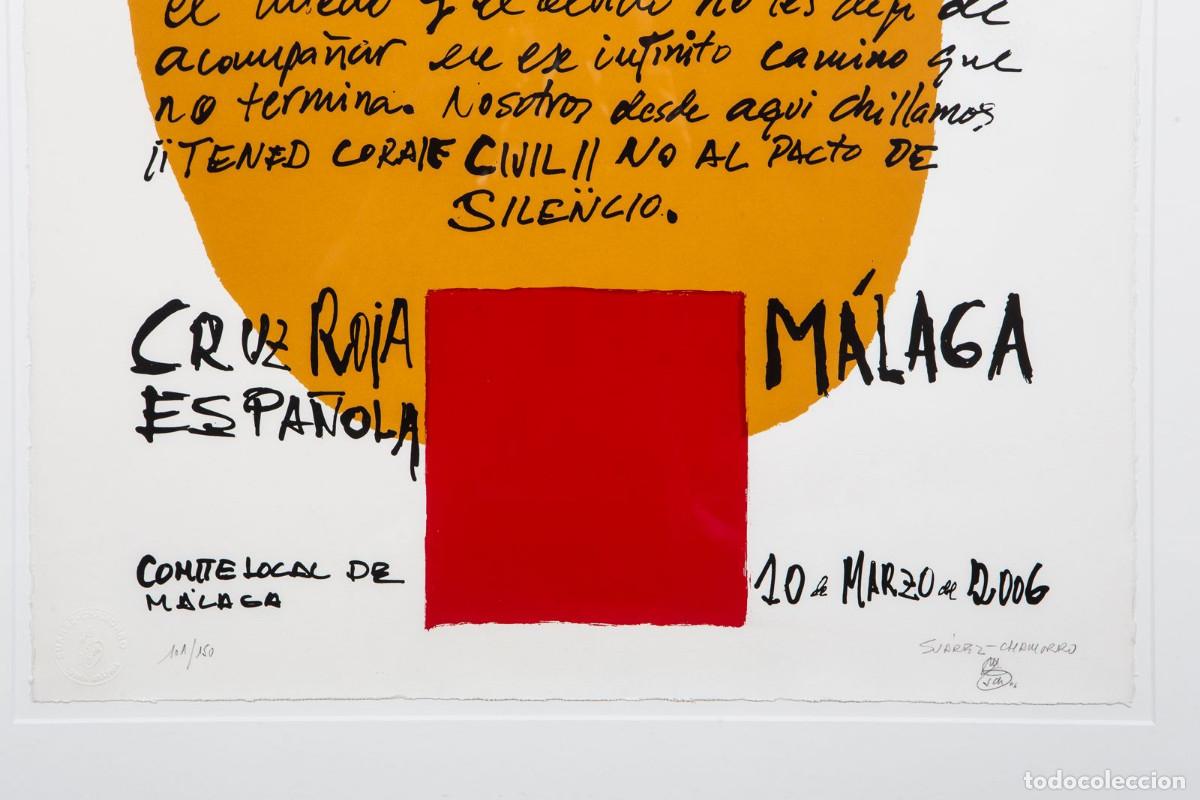 el miedo y el olvido no les deje de
acompañar en ese infinito camino que
no termina. Nosotros desde aqui chillamos
¡¡TENED CORAJE CIVIL!! NO AL PACTO DE
SILENCIO.
CRUZ ROJA
ESPAÑOLA
MÁLAGA
COMITE LOCAL DE
MÁLAGA
10 de MARZO del 2006
101/150
SUÁREZ-CHAMORRO
todocoleccion